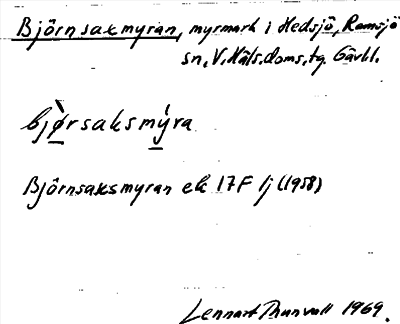 Björnsaxmyran, myrmark i Hedsjö, Ramsjö
sn, V. Häls. doms. tg. Gävbl.
bjø̀rsaksmýra
Björnsaxsmyran ek 17F 1j (1958)
Lennart Thunvall 1969.